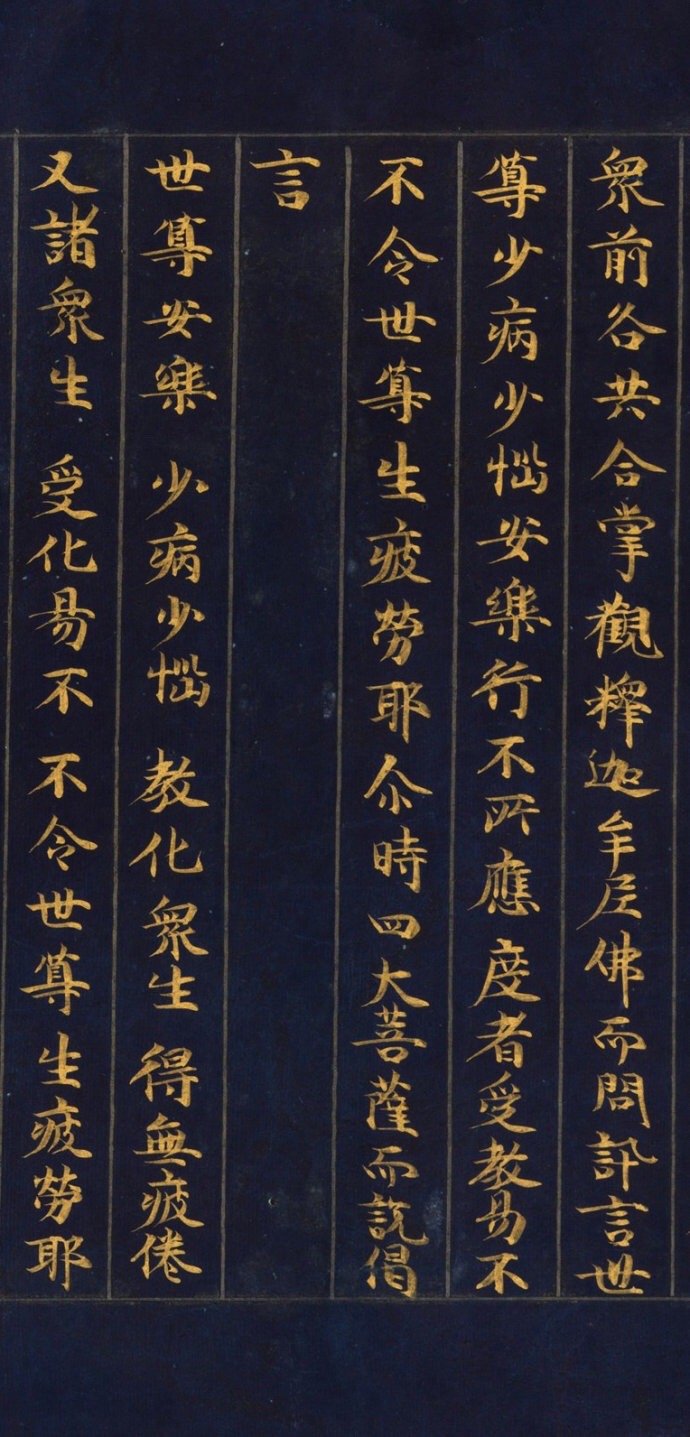 衆前各共合掌觀釋迦牟尼佛而問訊言世
尊少病少惱安樂行不所應度者受教易不
不令世尊生疲勞耶尒時四大菩薩而說偈
言
世尊安樂　少病少惱　教化衆生　得無疲倦
又諸衆生　受化易不　不令世尊　生疲勞耶